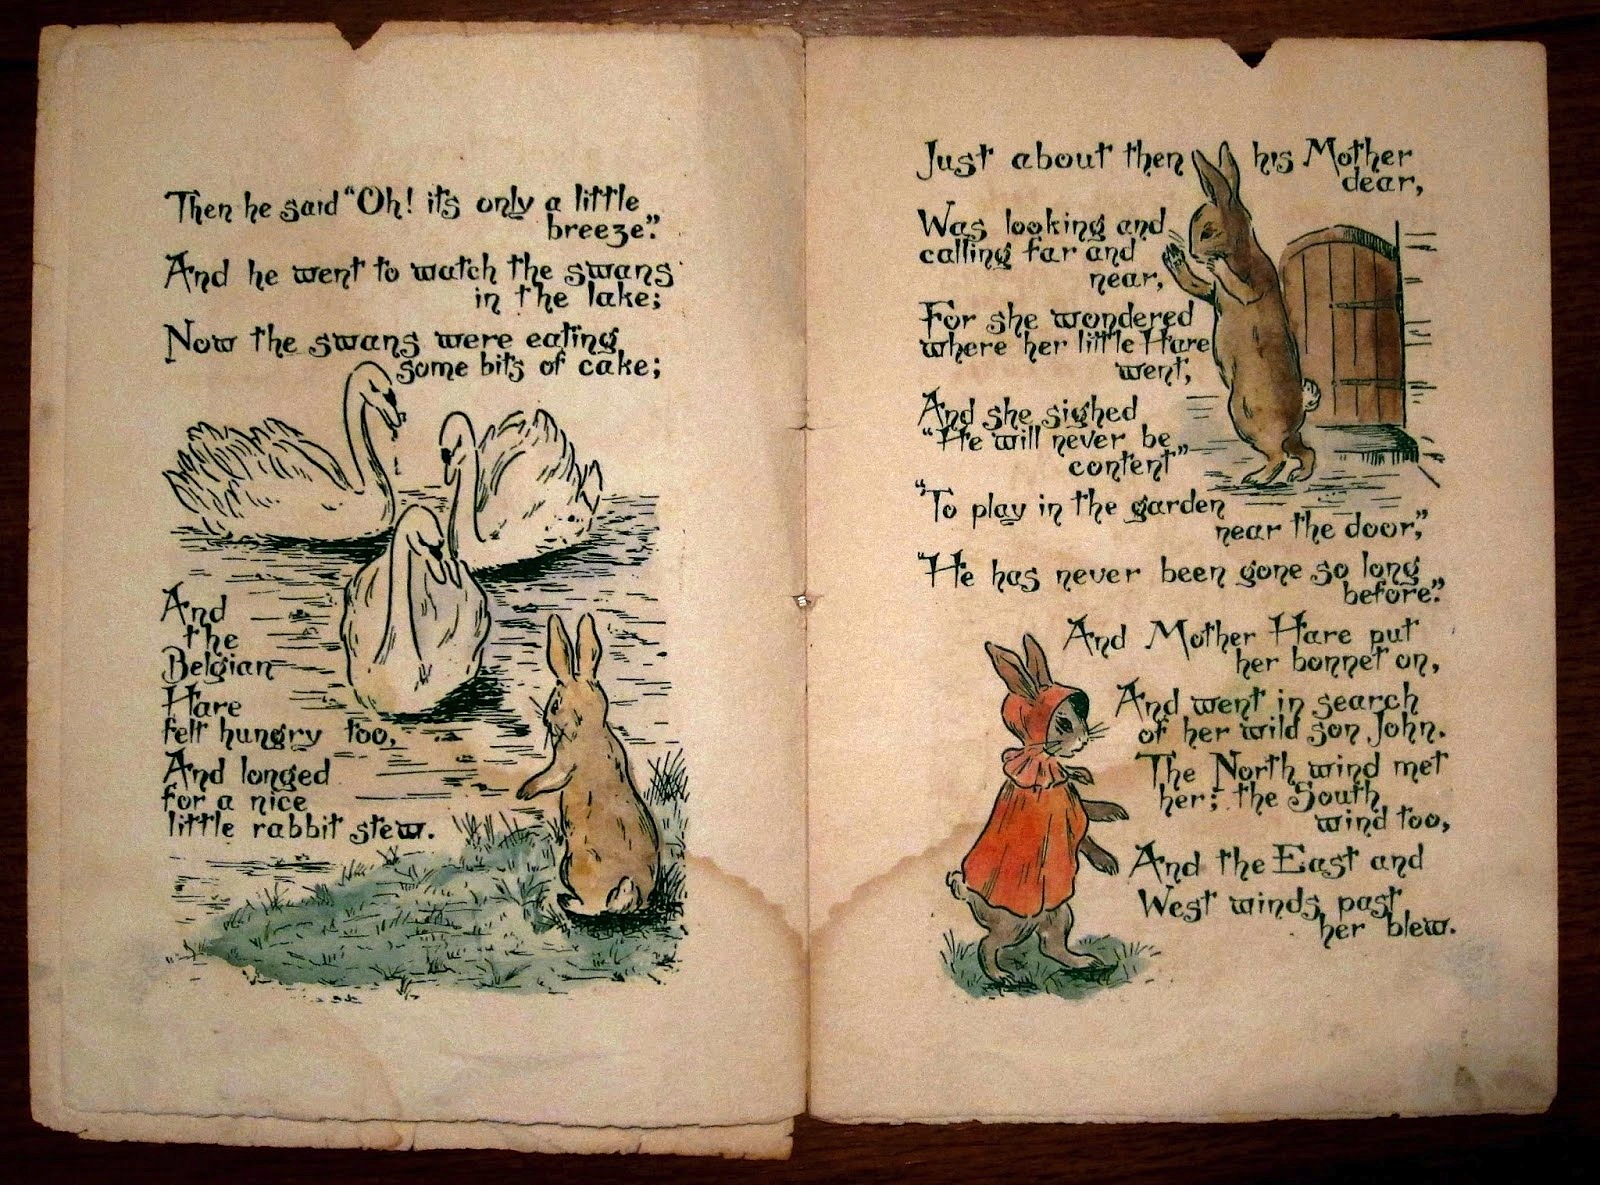 Then he said "Oh! its only a little
breeze".
And he went to watch the swans
in the lake;
Now the swans were eating
some bits of cake;
And
the
Belgian
Hare
felt hungry too,
And longed
for a nice
little rabbit stew.
Just about then his Mother
dear,
Was looking and
calling far and
near,
For she wondered
where her little Hare
went;
And she sighed
"He will never be
content"
"To play in the garden
near the door,"
"He has never been gone so long
before".
And Mother Hare put
her bonnet on,
And went in search
of her wild son John.
The North wind met
her; the South
wind too,
And the East and
West winds past
her blew.